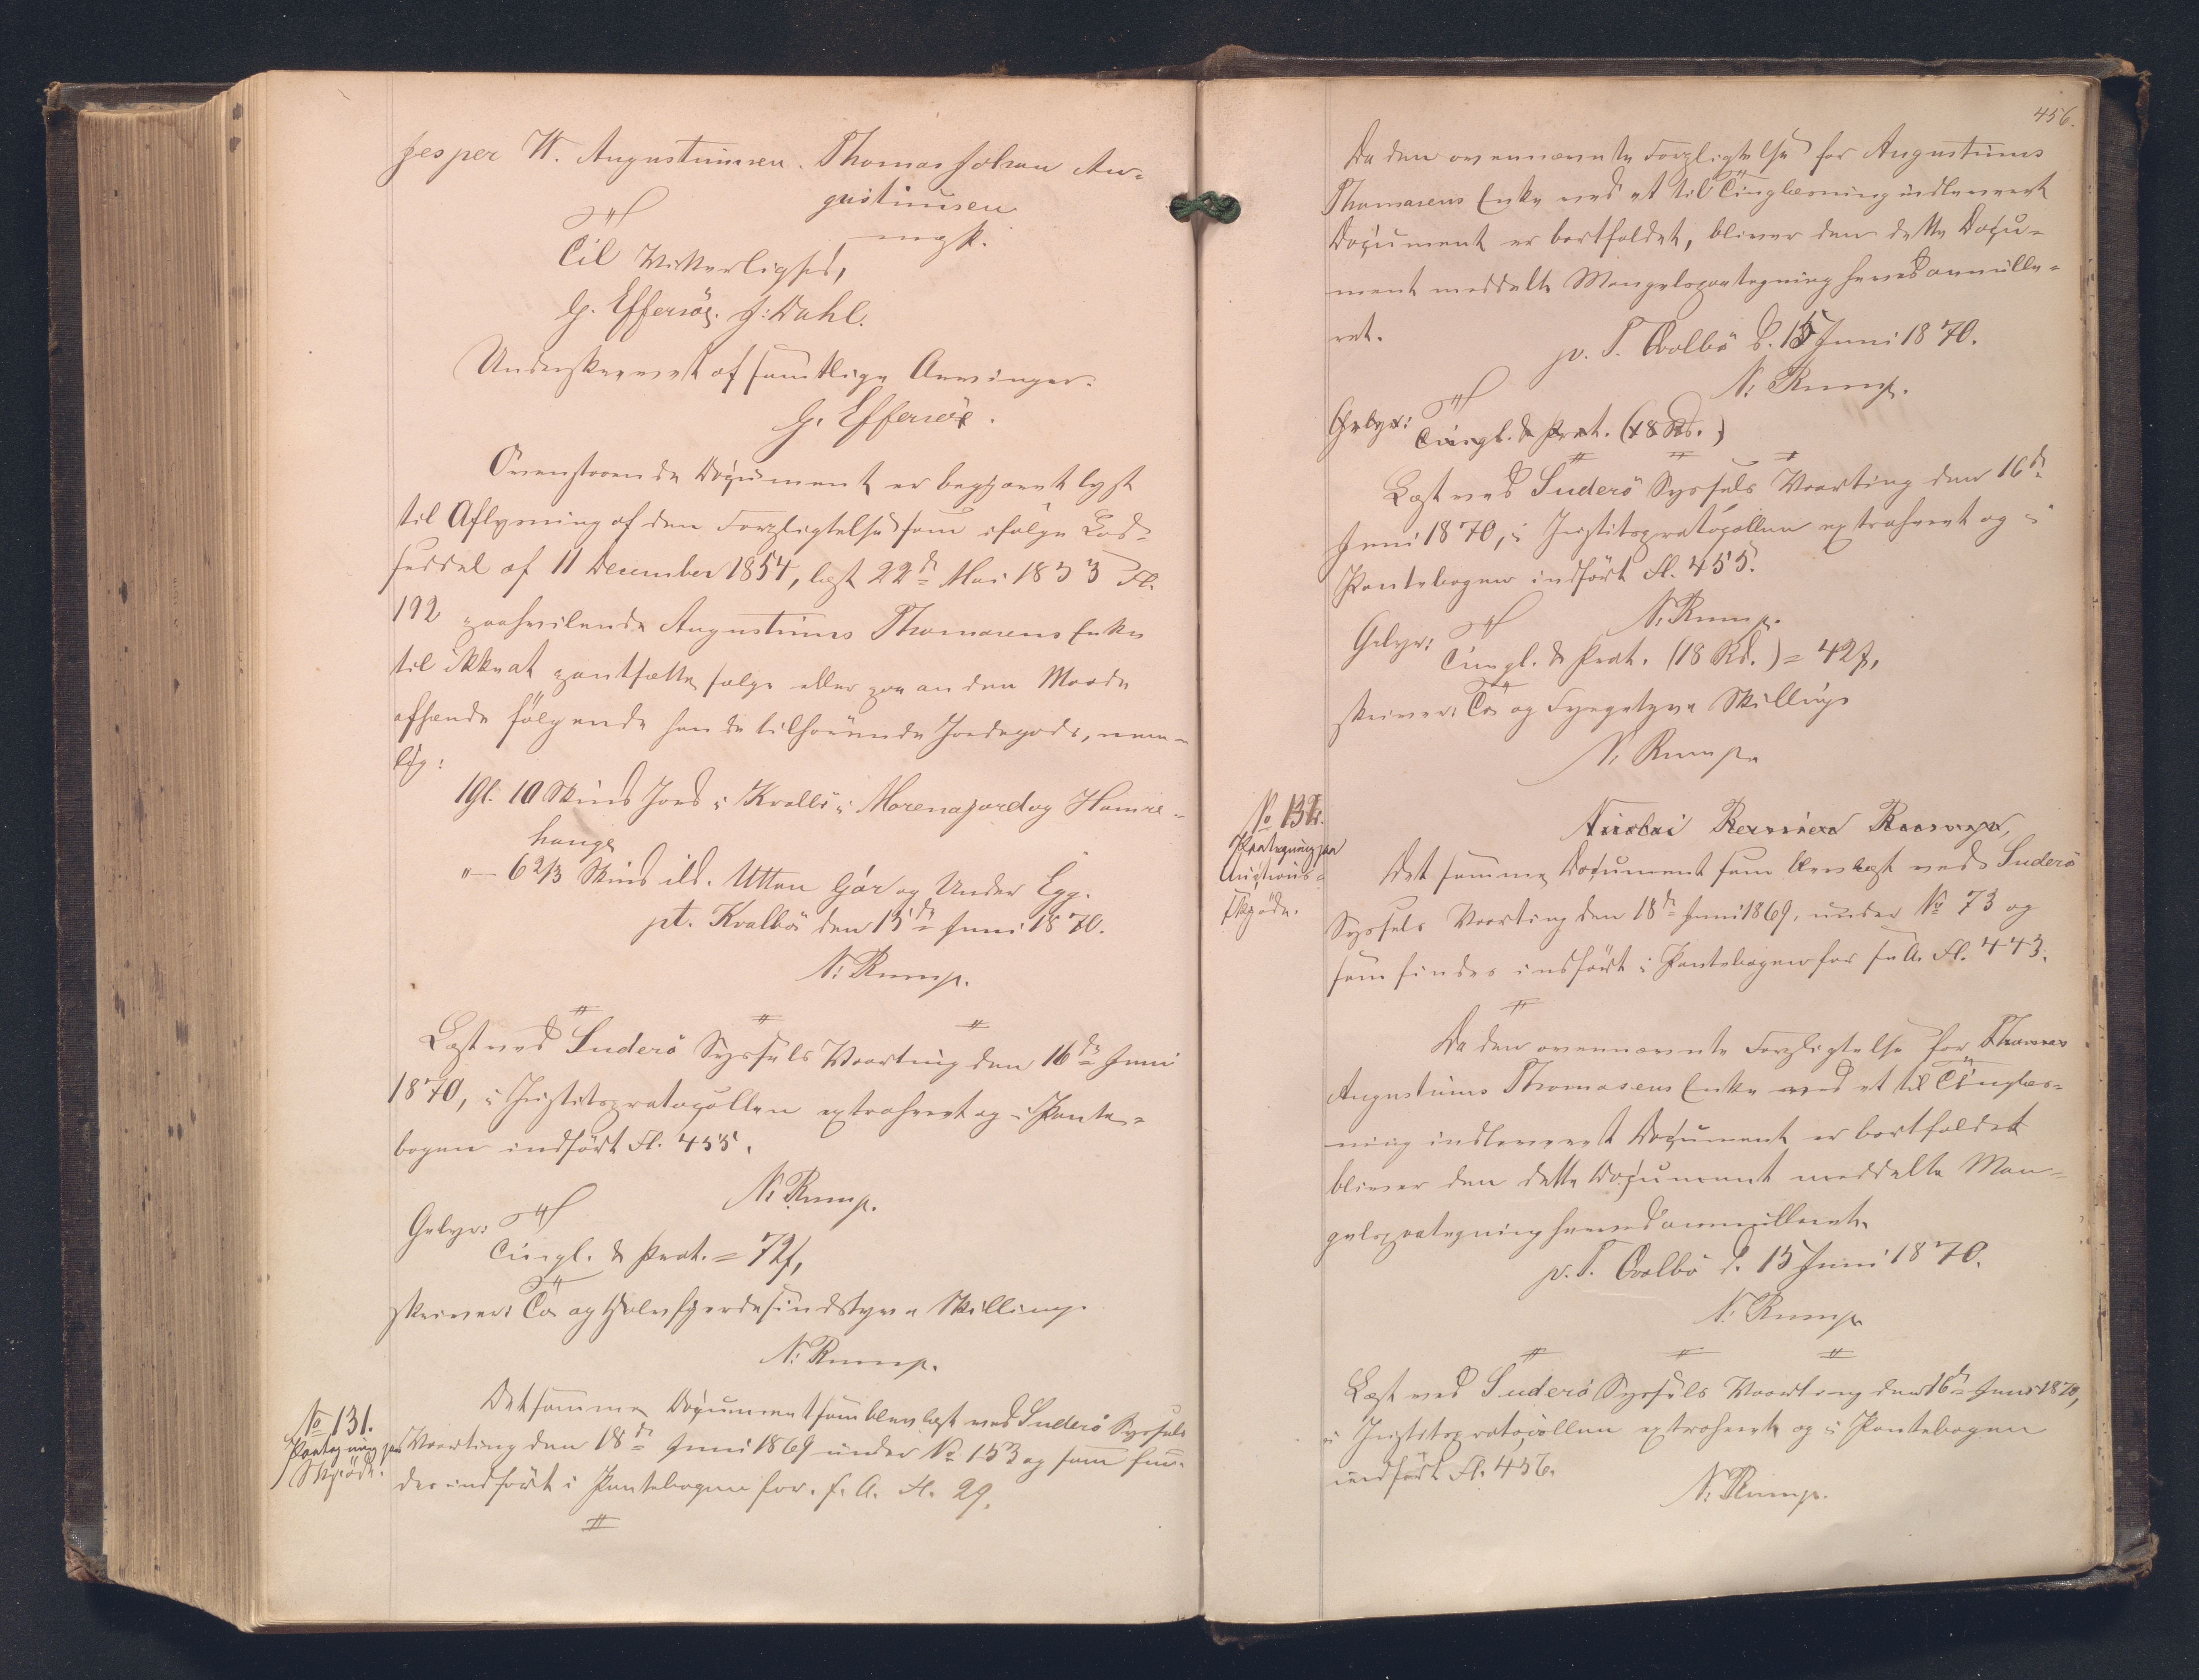 Jesper W. Augustinusen. Thomas Johan Au-
gustinusen
m. f. P.
Til Vitterlighed,
G. Effersöe. J. Dahl.
Underskrevet af samtlige Arvinger.
G. Effersöe.
Ovenstaaende Document er begjært lyst
til Aflysning af den Forpligtelse som ifølge Lod-
seddel af 11 December 1854, læst 22de Mai 1855 Fl.
192 paahvilende Augustinus Thomasens Enke
til ikke at pantsætte, sælge eller paa anden Maade
afhænde følgende hende tilhørende Jordegods, nem-
lig:
1 Gl. 10 Skind Jord i Kvalbö i Morenajord og Hamre-
hauge
"— 6 2/3 Skind ibd. Uttan Gar og Under Egg.
pt. Kvalbö den 15de Juni 1870.
N: Rump.
Læst ved Suderö Syssels Vaarting den 16de Juni
1870, i Justitsprotocollen extraheret og i Pante-
bogen indført Fl. 455.
N: Rump.
Gebyr:
Tingl. & Prot. = 72 f,
skriver: To og Halvfjerdesindstyve Skilling.
N: Rump.
No 131.
Paategning paa
Skjöde.
Det samme Document som blev læst ved Suderö Syssels
Vaarting den 18de Juni 1869 under No 153 og som fin-
des indført i Pantebogen for. f. A. Fl. 29.
456.
Da den ovennævnte Forpligtelse for Augustinus
Thomasens Enke ved et til Tinglæsning indleveret
Document er bortfaldet, bliver den dette Docu-
ment meddelte Mangelspaategning herved annulle-
ret.
p. T. Qvalbö d. 15 Juni 1870.
N: Rump.
Gebyr:
Tingl. & Prot. (18 Rd.)
Læst ved Suderö Syssels Vaarting den 16de
Juni 1870, i Justitsprotocollen extraheret og i
Pantebogen indført Fl. 455.
N: Rump.
Gebyr:
Tingl. & Prot. (18 Rd.) = 42 f,
skriver: To og Fyrgetyve Skilling
N: Rump.
No 132.
Paategning paa
Auctions-
skjöde.
Det samme Document som blev læst ved Suderö
Syssels Vaarting den 18de Juni 1869, under No 73 og
som findes indført i Pantebogen for s. A. Fl. 443.
Da den ovennævnte Forpligtelse for Thomas
Augustinus Thomasens Enke ved et til Tinglæs-
ning indleveret Document er bortfaldet
bliver den dette Document meddelte Man-
gelspaategning herved annulleret.
p. T. Qvalbö d. 15 Juni 1870.
N: Rump
Læst ved Suderö Syssels Vaarting den 16de Juni 1870,
i Justitsprotocollen extraheret og i Pantebogen
indført Fl. 456.
N: Rump.